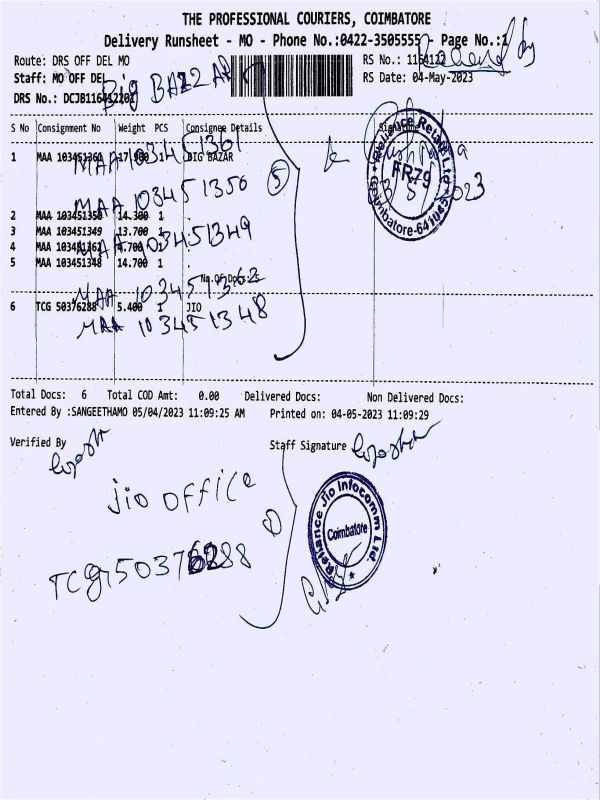 THE PROFESSIONAL COURIERS, COIMBATORE
Delivery Runsheet - MO - Phone No.:0422-3505555 - Page No.:1
Route: DRS OFF DEL MO
RS No.: 1164122
Staff: MO OFF DEL
RS Date: 04-May-2023
Big BAZZAR
DRS No.: DCJB116412201
S No Consignment No Weight PCS Consignee Details Signature
1 MAA 103451361 17.900 1 BIG BAZAR
MAA 103451361
MAA 103451350
2 MAA 103451350 14.300 1 .
3 MAA 103451349 13.700 1 .
MAA 103451349
4 MAA 103451362 4.700 1 .
5 MAA 103451348 14.700 1 .
No.Of Docs: 5
MAA 103451362
6 TCG 50376288 5.400 1 JIO
MAA 103451348
5
Reliance Retail Ltd
FRZ9
Coimbatore-641
Total Docs: 6 Total COD Amt: 0.00 Delivered Docs: Non Delivered Docs:
Entered By :SANGEETHAMO 05/04/2023 11:09:25 AM Printed on: 04-05-2023 11:09:29
Verified By Staff Signature
jio office
TCG 50376288
1
Reliance Jio Infocomm Ltd.
Coimbatore